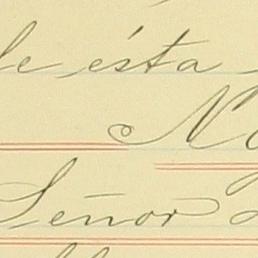 de ésta
No
Señor